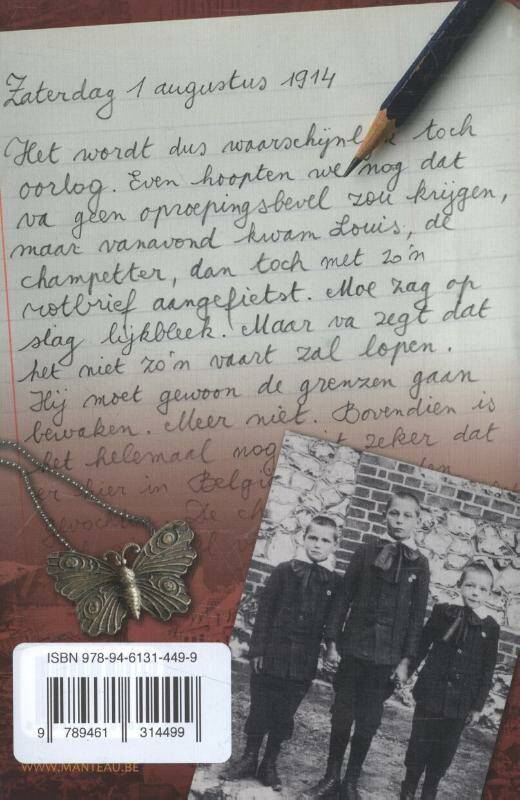 Zaterdag 1 augustus 1914
Het wordt dus toch
oorlog. Even hoopten we nog dat
va geen oproepingsbevel zou krijgen,
maar vanavond kwam Louis, de
champetter, dan toch met zo'n
rotbrief aangefietst. Moe zag op
slag lijkbleek. Maar va zegt dat
het niet zo'n vaart zal lopen.
Hij moet gewoon de grenzen gaan
bewaken. Meer niet. Bovendien is
het helemaal nog zeker dat
er hier in
De
ISBN 978-94-6131-449-9
9 789461 314499
WWW.MANTEAU.BE